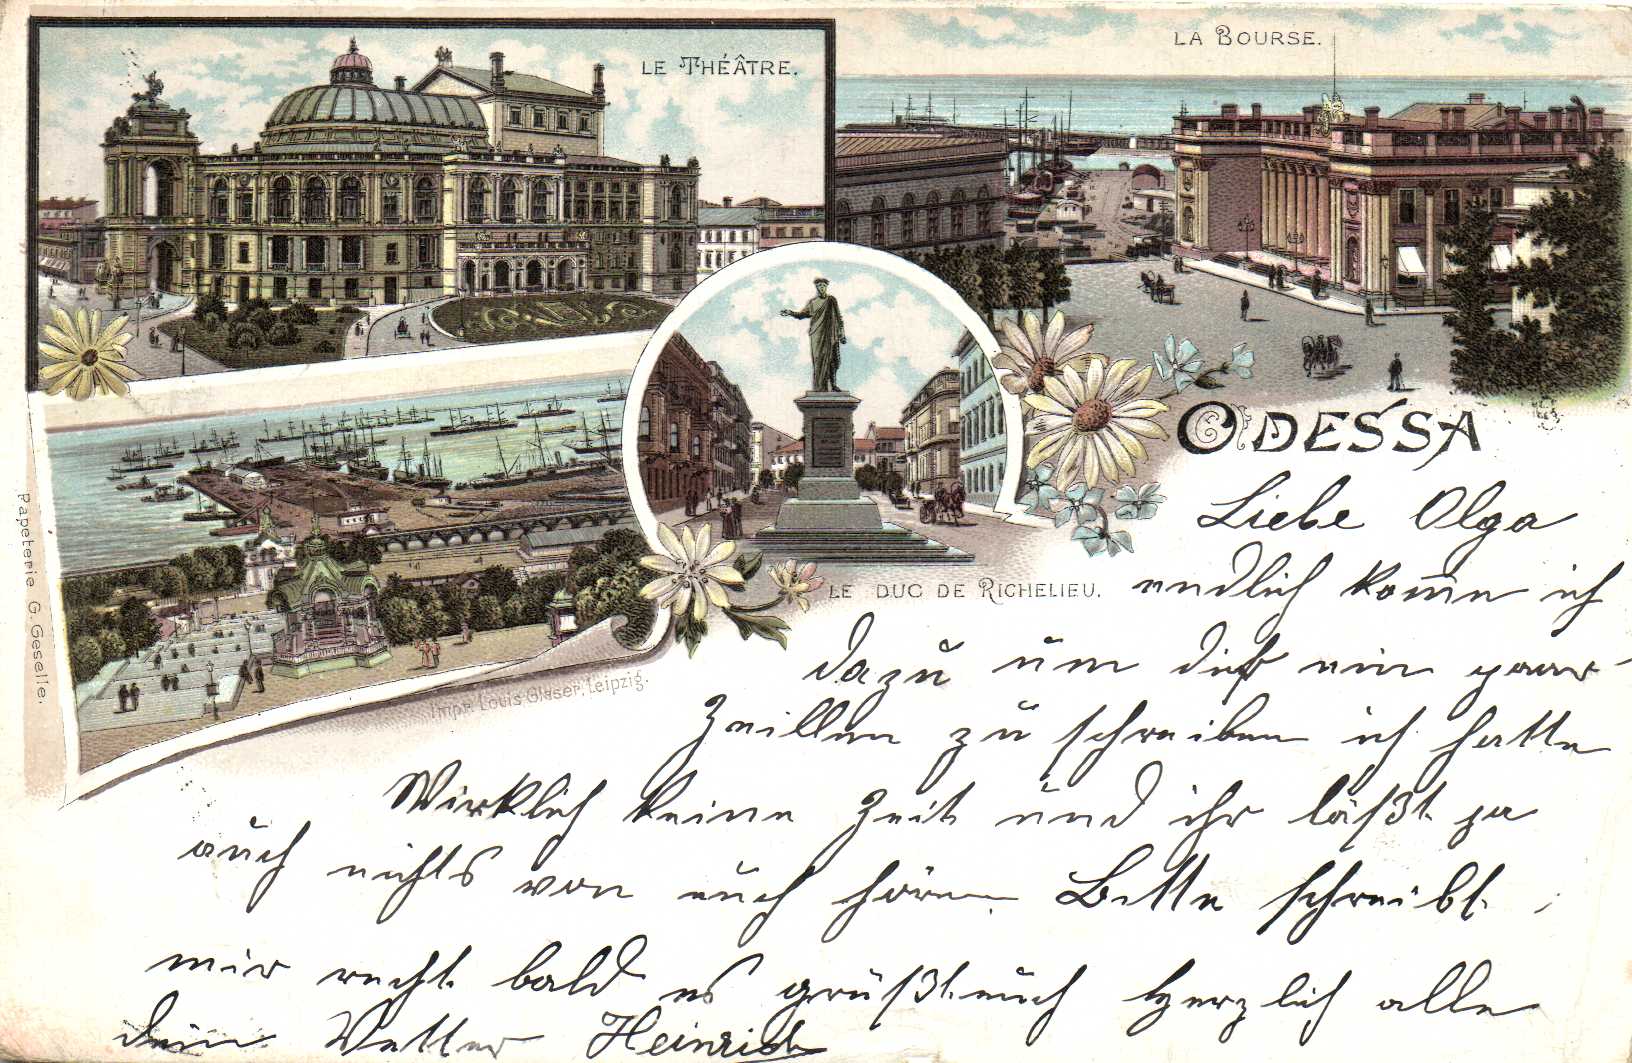 LE THÉÂTRE.
LA BOURSE.
ODESSA
LE DUC DE RICHELIEU.
Papeterie G. Geselle.
Impr. Louis Glaser, Leipzig.
Liebe Olga
endlich kom̅e ich
dazu um dich ein paar
Zeillen zu schreiben ich hatte
Wirklich keine Zeit und ihr läßt ja
auch nichts von euch hören. Bitte schreibt
mir recht bald es grüßt euch Herzlich alle
dein Vetter Heinrich